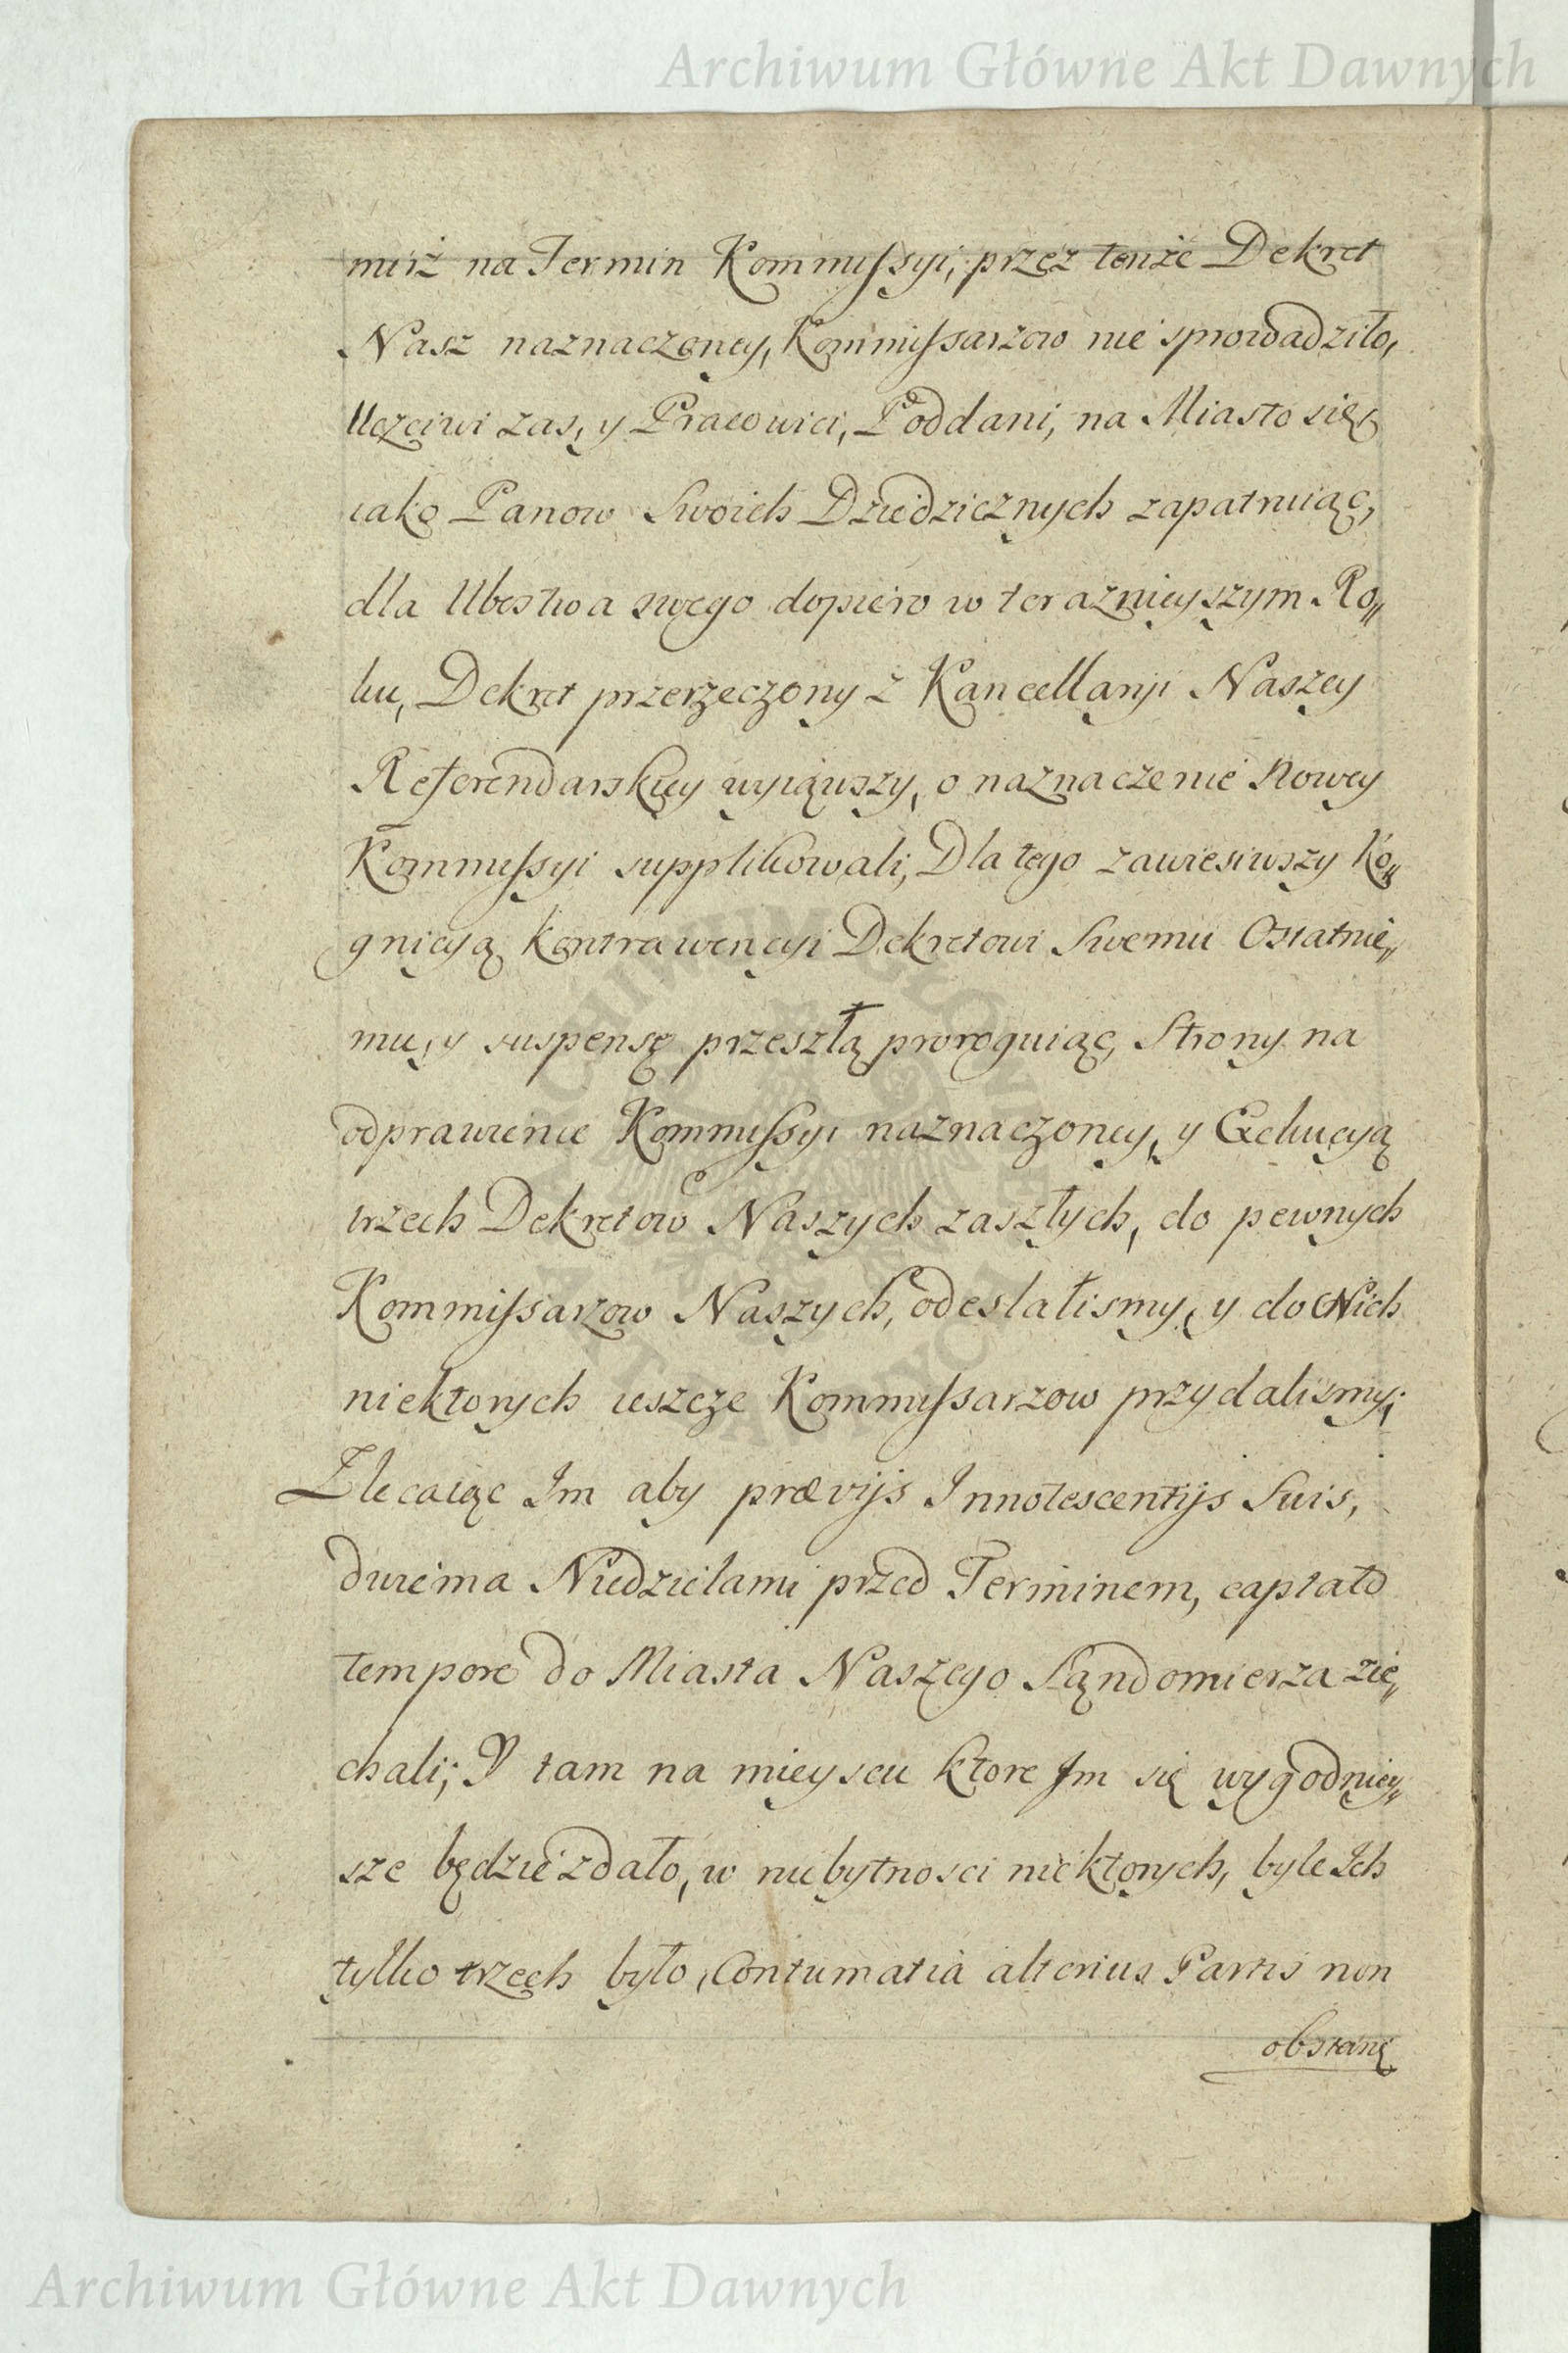 Archiwum Główne Akt Dawnych
mirz na Termin Kommissyi, przez tenże Dekret
Nasz naznaczoney, Kommissarzow nie sprowadziło,
Uczciwi zas, y Pracowici, Poddani, na Miasto się,
iako Panow Swoich Dziedzicznych zapatruiąc,
dla Ubostwa swego dopiero w teraznieyszym Ro„
ku, Dekret przerzeczony z Kancellaryi Naszey
Referendarskiey wyiąwszy, o naznaczenie Nowey
Kommissyi supplikowali, Dla tego zawiesiwszy Ko„
gnicyą kontrawencyi Dekretowi Swemu Ostatnie„
mu, y suspensę przeszłą proroguiąc, Strony na
odprawienie Kommissyi naznaczoney, y Exekucyą
trzech Dekretow Naszych zaszłych, do pewnych
Kommissarzow Naszych, odesłalismy, y do Nich
niektorych ieszcze Kommissarzow przydalismy;
Zlecaiąc Im aby prævijs Innotescentijs Suis,
dwiema Niedzielami przed Terminem, captato
tempore do Miasta Naszego Sandomierza zie„
chali; Y tam na mieyscu ktore Im się wygodniey„
sze będzie zdało, w niebytnosci niektorych, byle Ich
tylko trzech było, Contumatia alterius Partis non
obstante
Archiwum Główne Akt Dawnych